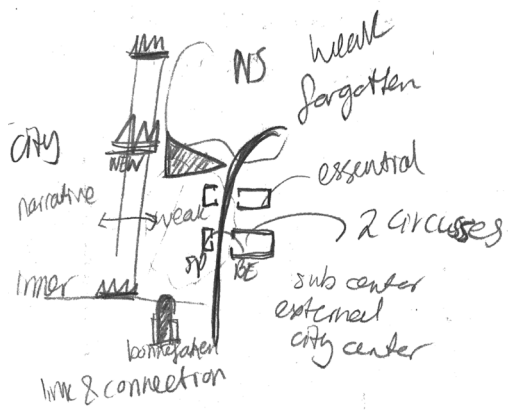 NS
weak
forgotten
city
NEW
essential
narrative
weak
2 circusses
SP
BE
inner
sub center
external
city center
link & connection